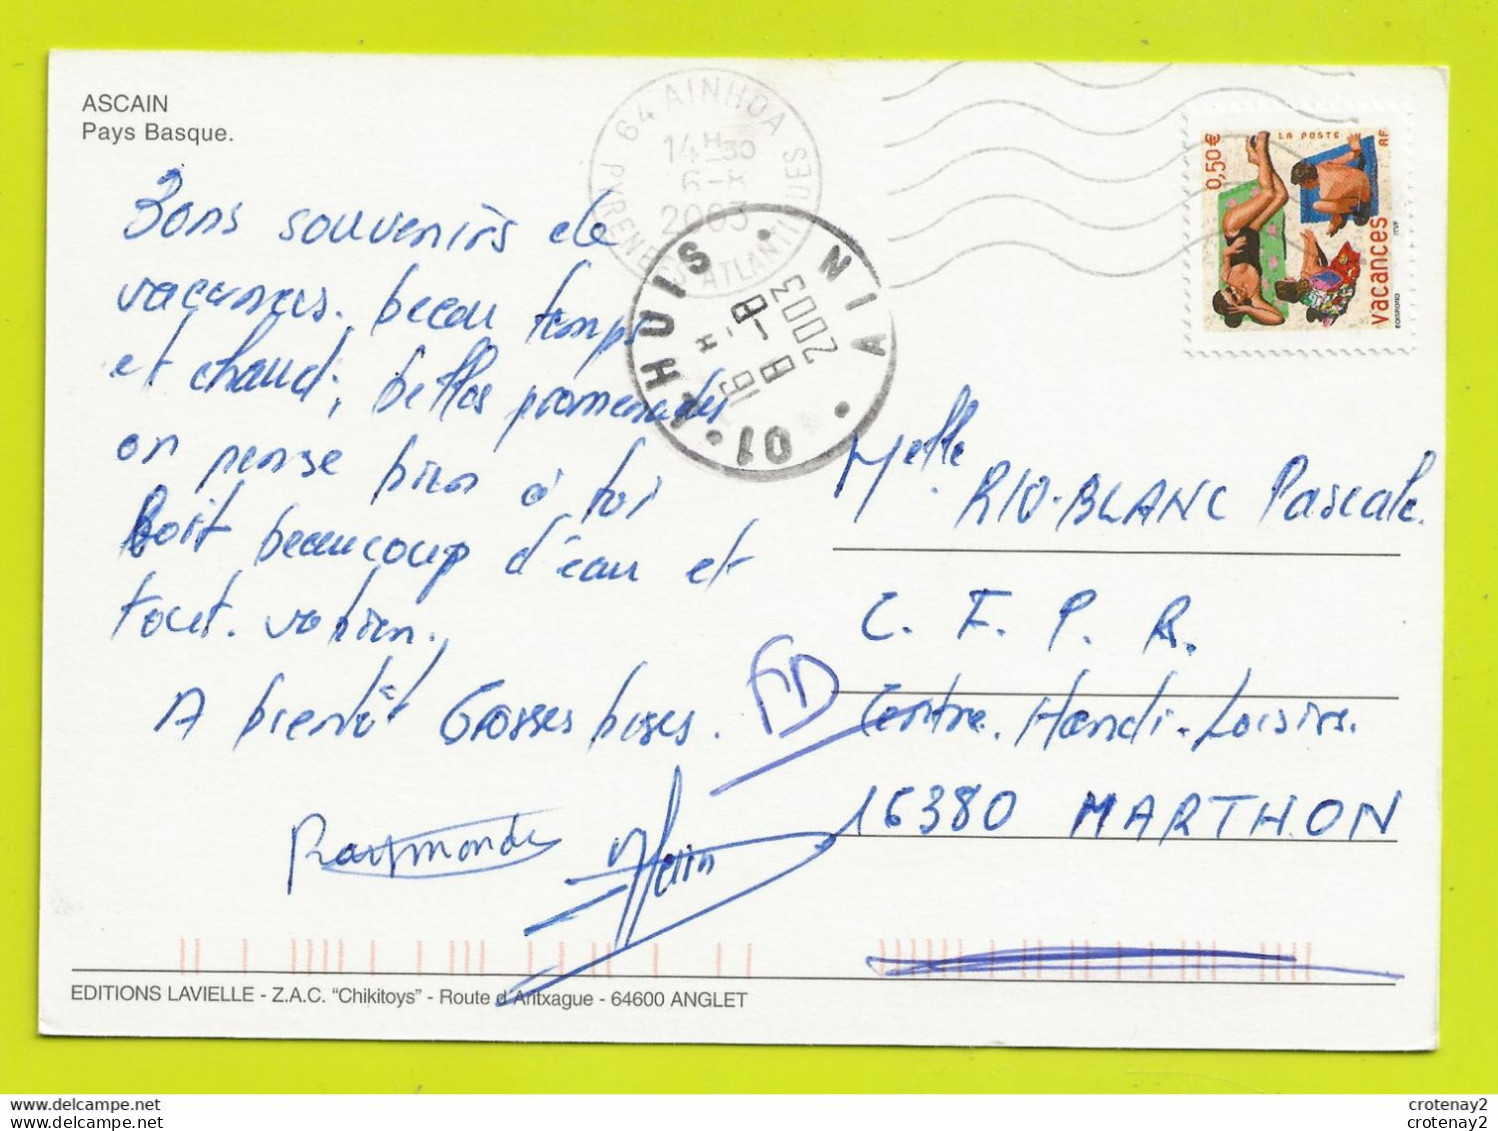 ASCAIN
Pays Basque.
64 AINHOA
14H30
6-8
2003
PYRENEES ATLANTIQUES
01·LHUIS·NIA·
16H
8-8
2003
0,50€
LA POSTE
RF
vacances
ITVF
BOISROND
Bons souvenirs de
vacances. beau temps
et chaud, belles promenades
on pense bien à toi
Boit beaucoup d'eau et
tout. va bien.
A bientôt Grosses bises.
Raymonde
Melle
RIO-BLANC Pascale.
C. F. P. R.
Centre. Handi-Loisirs.
16380 MARTHON
EDITIONS LAVIELLE - Z.A.C. "Chikitoys" - Route d'Aritxague - 64600 ANGLET
crotenay2
crotenay2
crotenay2
crotenay2